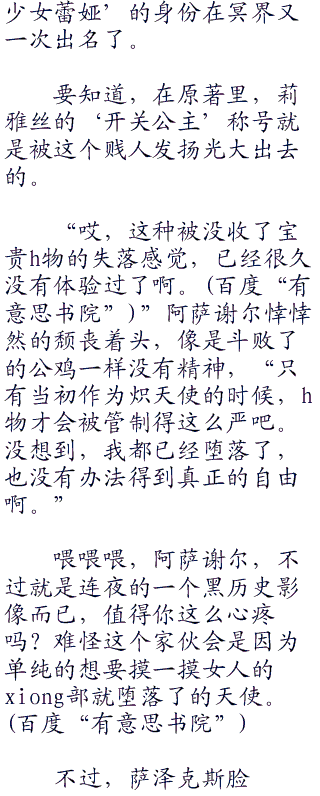 少女蕾娅’的身份在冥界又
一次出名了。
要知道，在原著里，莉
雅丝的‘开关公主’称号就
是被这个贱人发扬光大出去
的。
“哎，这种被没收了宝
贵h物的失落感觉，已经很久
没有体验过了啊。(百度“有
意思书院”)”阿萨谢尔悻悻
然的颓丧着头，像是斗败了
的公鸡一样没有精神，“只
有当初作为炽天使的时候，h
物才会被管制得这么严吧。
没想到，我都已经堕落了，
也没有办法得到真正的自由
啊。”
喂喂喂，阿萨谢尔，不
过就是连夜的一个黑历史影
像而已，值得你这么心疼
吗？难怪这个家伙会是因为
单纯的想要摸一摸女人的
xiong部就堕落了的天使。
(百度“有意思书院”)
不过，萨泽克斯脸